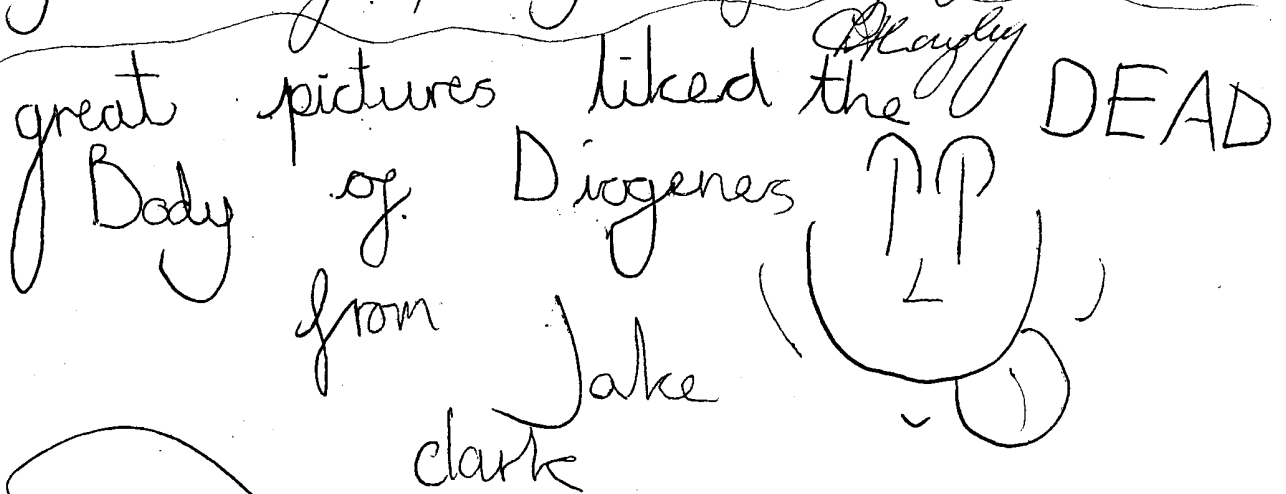 great pictures liked the DEAD
Body of Diogenes
from
Jake
clark